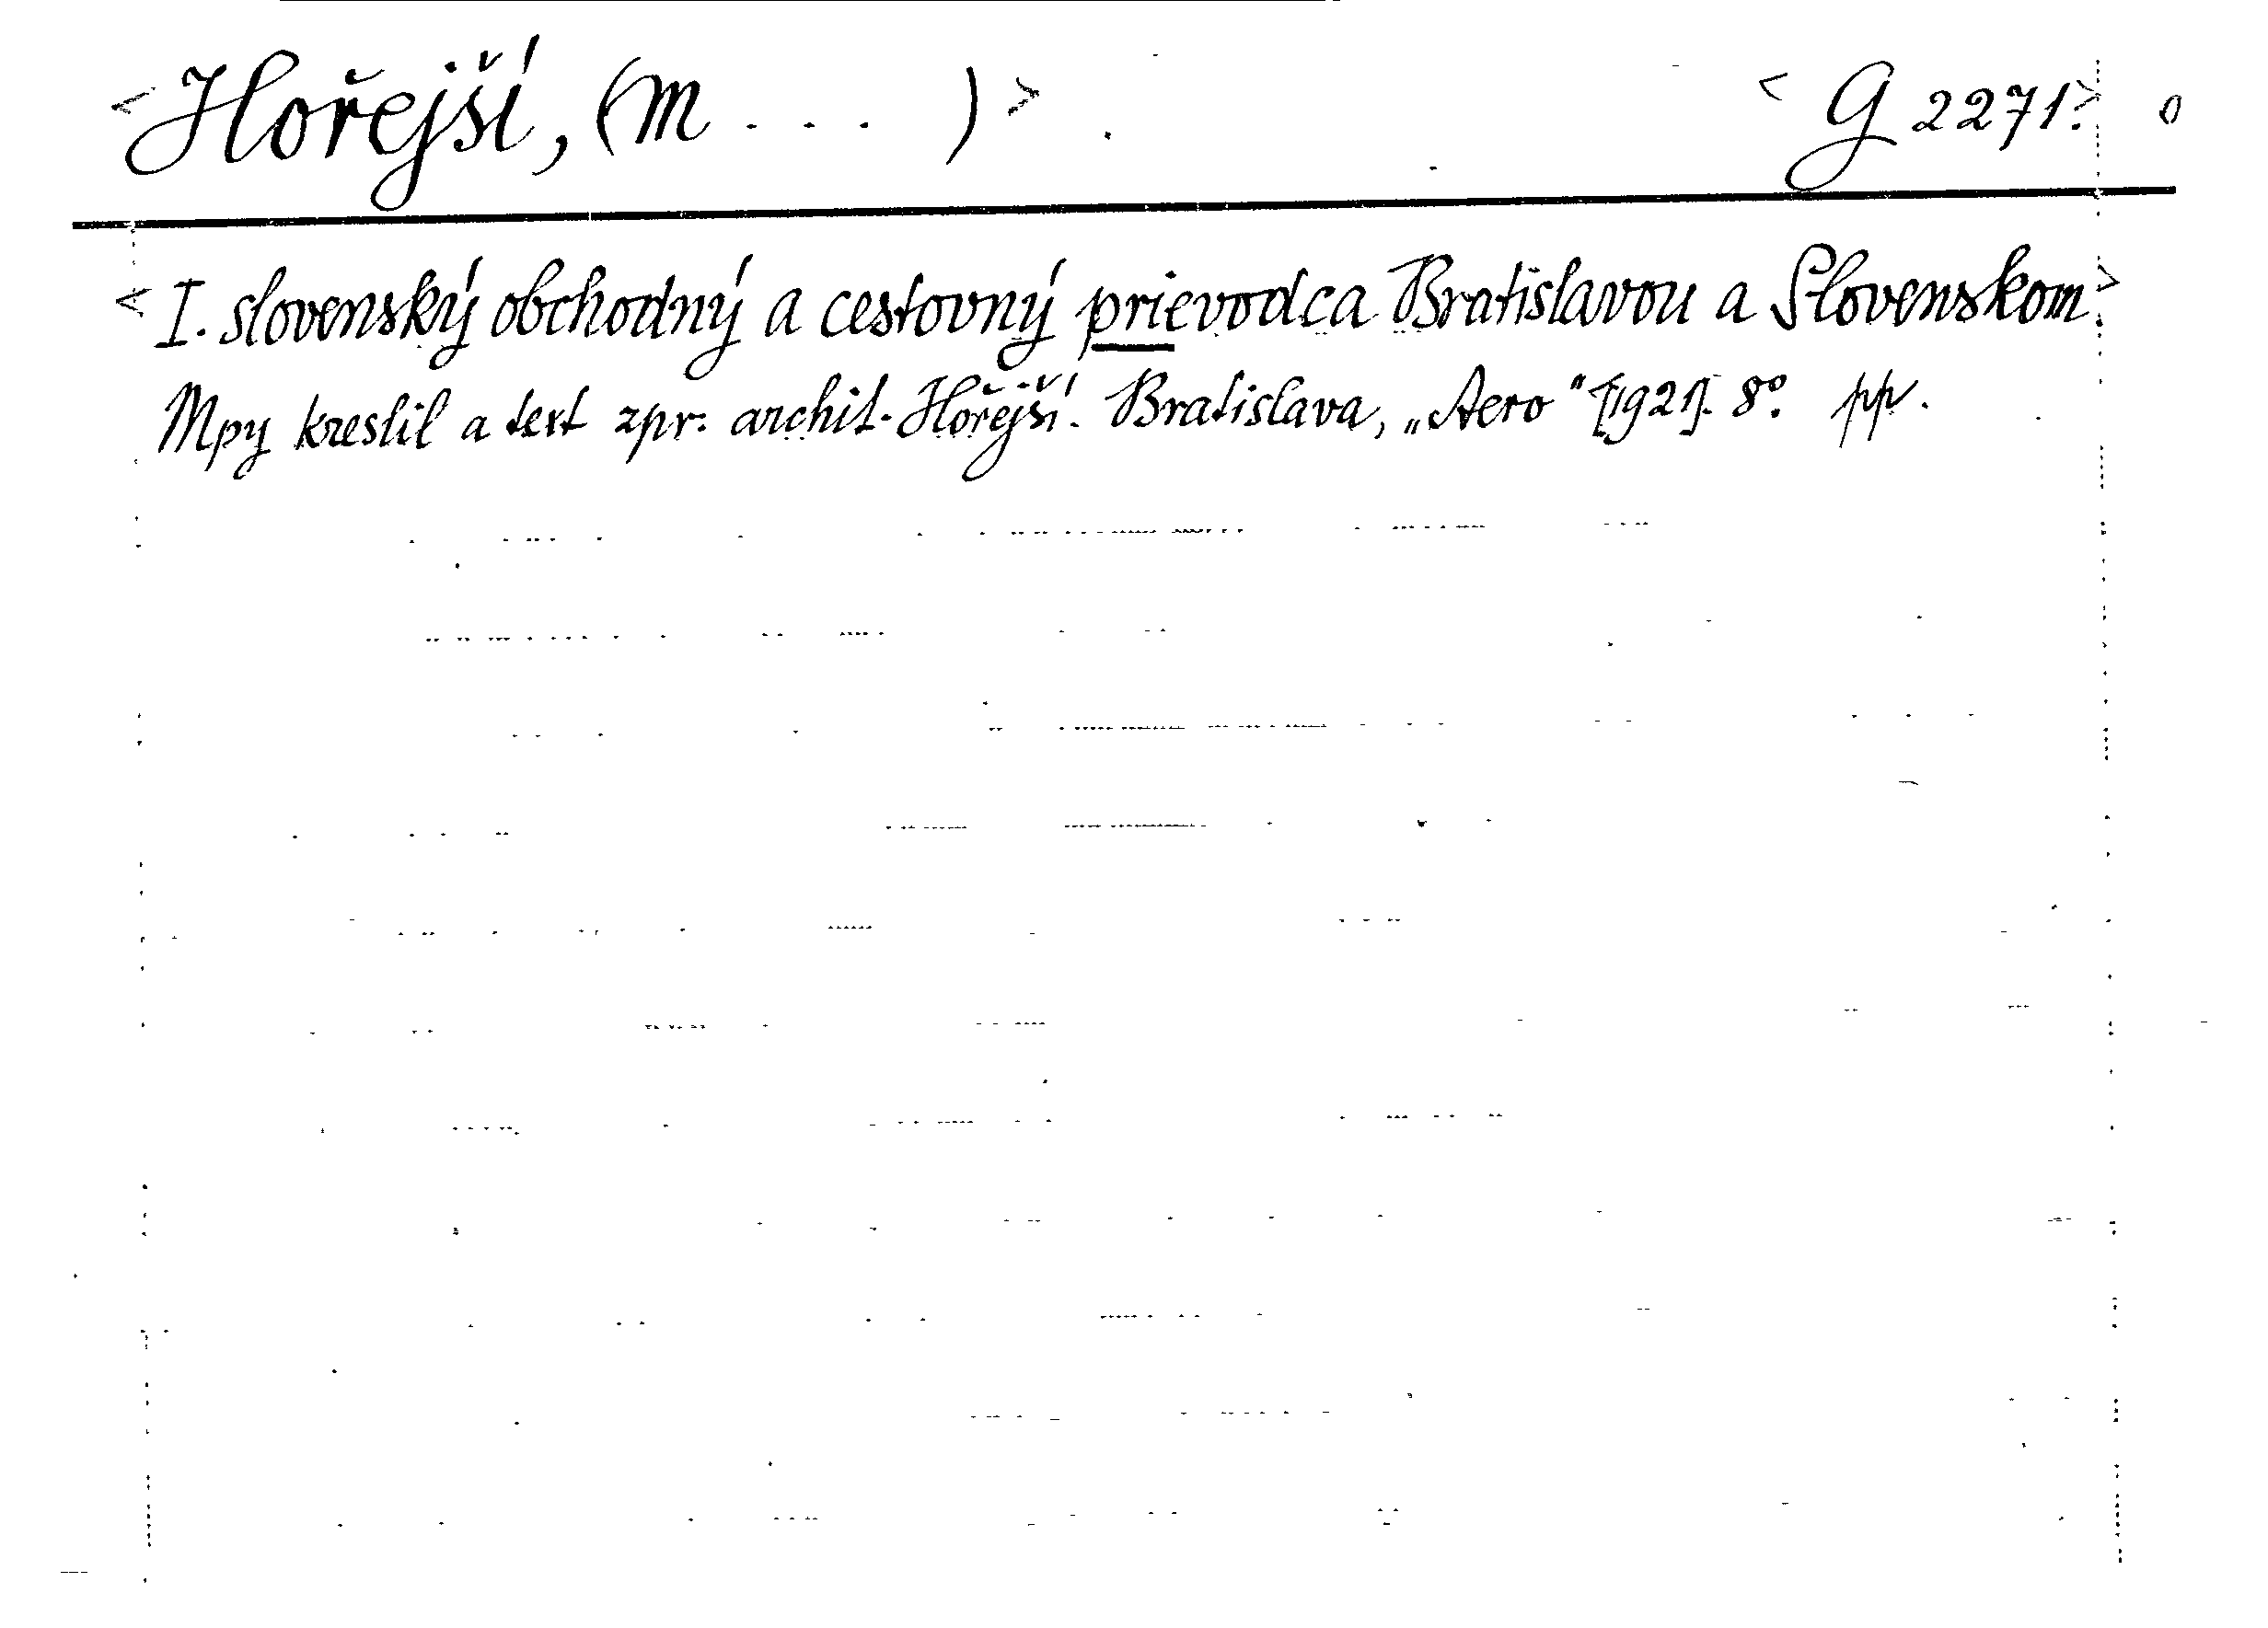 <Hořejší, (M . . . )> . <G 2271.> 0
<I. slovenský obchodný a cestovný prievodca Bratislavou a Slovenskom.>
Mpy kreslil a text zpr. archit. Hořejší. Bratislava, „Aero" [1921]. 8°. pp.